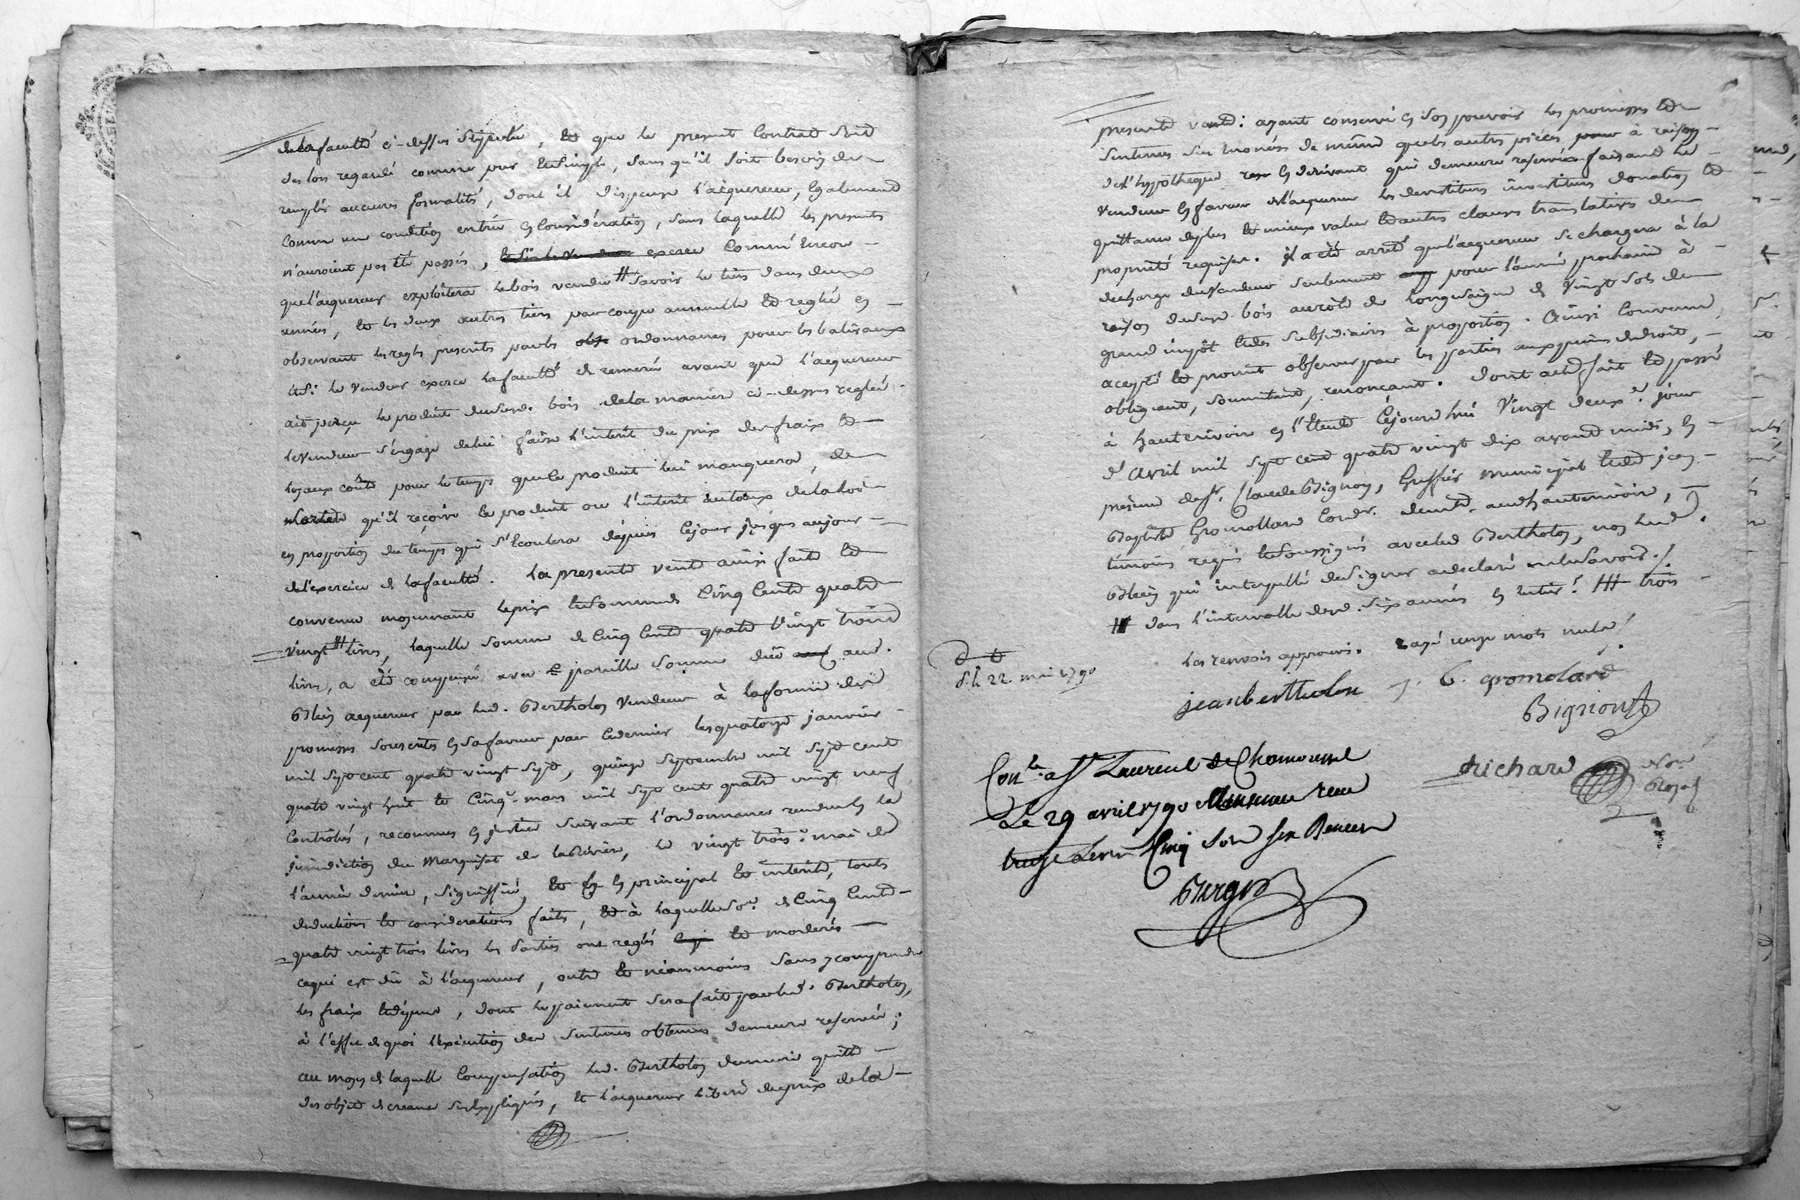 de la faculté ci-dessus stipulée, et que le present Contrat soit
des lors regardé comme pur et simple, sans qu'il soit besoin de
remplir aucunes formalités, dont il dispense l'acquereur, egalement
comme une condition entrée en Considération, sans laquelle les presentes
n'auroient pas été passées, exercé Comm'encor
que l'acquereur exploitera le bois vendu # savoir le tiers dans deux
années, et les deux autres tiers par coupe annuelle et reglée en
observant les regles prescrites par les ordonnances pour les baliveaux
et si le vendeur exerce la faculté de remeré avant que l'acquereur
ait perçu le produit dud. bois de la maniere ci-dessus reglée
le vendeur s'engage de lui faire l'interêt du prix des fraix et
loyaux coûts pour le temps que le produit lui manquera, de
sorte qu'il reçoive le produit ou l'intérêt au taux de la loi
en proportion du temps qui s'ecoulera depuis ce jour jusques au jour
de l'exercice de la faculté. La presente vente ainsi faite et
convenue moyenant le prix et somme de Cinq Cents quatre
vingt # livres, laquelle somme de Cinq Cents quatre vingt trois
livres, a été compensée avec pareille somme due aud.
Blein acquereur par led. Bertholon vendeur à la forme des
promesses souscrites en sa faveur par ce dernier les quatorze janvier
mil sept cent quatre vingt sept, quinze septembre mil sept cent
quatre vingt huit et cinq mars mil sept cent quatre vingt neuf
Controlées, reconnues en justice suivant l'ordonnance rendue en la
jurisdiction du Marquisat de la Riviere, le vingt trois mai de
l'année derniere, signiffiée, et en principal et interêts, toutes
deductions et considerations faites, et à laquelle so.e de Cinq Cents
quatre vingt trois livres les parties ont reglé et moderés
ce qui est dû à l'acquereur, outre et néanmoins sans y comprendre
les fraix et dépens, dont le paiement sera fait par led. Bertholon,
à l'effet de quoi l'exécution des sentences obtenues demeure reservée;
au moyen de laquelle Compensation led. Bertholon demeure quitte
des objets de creance susexpliqués, et l'acquereur liberé du prix de la
presente vente: ayant conservé en son pouvoir les promesses et
sentences susénoncées de même que les autres pièces, pour à raison
de l'hypotheque en derivant qui demeure reservée faisant le
vendeur en faveur de l'acquereur les devestitures investitures donation et
quittance de plus et mieux value et autres clauses translatives de
proprieté requises. Il a été arrêté que l'acquereur se chargera à la
décharge du vendeur seulement pour l'année prochaine à
raison dud. bois au rôle de Longesaigne de vingt sols de
grand impôt et des subsidiaires à proportion. Ainsi Convenu,
acepté et promis observer par les parties aux peines de droit,
obligeant, soumettant, renonçant. Dont acte fait et passé
à hauterivoire en l'Etude cejourd'hui vingt deux.e jour
d'avril mil sept cent quatre vingt dix avant midi, en
presence de sr. Claude Bignon, Greffier municipal et de jean
Baptiste Gromollard Cord.r demt. aud. hauterivoire,
temoins requis et soussignés avec led. Bertholon, non led.
Blein qui interpellé de signer a declaré ne le savoir./.
# dans l'intervalle desd. six années en entier. ### trois
Les renvois approuvés. rayé onze mots nuls./.
d.l. 22. mai 1790
jean bertholon j. b. gromolard
Bignon
Richard
Nore
Royal
Con.le a St Laurent de Chamousset
Le 29 avril 1790
treize Livres Cinq sous